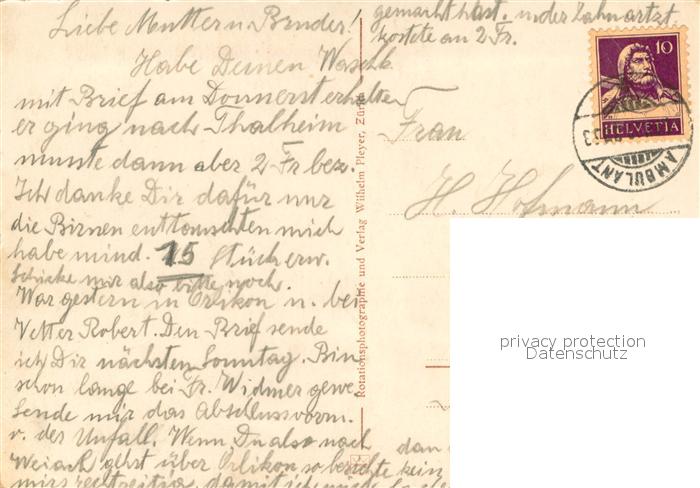 Liebe Mutter u. Bruder!
Habe Deinen Wasch
mit Brief am Donnerst erhalten
er ging nach Thalheim
musste dann aber 2 Fr bez.
Ich danke Dir dafür nur
die Birnen enttäuschten mich
habe mind. 15 Stück erw.
Schicke mir also bitte noch.
War gestern in Örlikon u. bei
Vetter Robert. Den Brief sende
ich Dir nächsten Sonntag. Bin
schon lange bei Fr. Widmer gewe
Sende mir das Abschluss
v. der Unfall. Wenn Du also nach
Weiach gehst über Örlikon so berichte kein
mirs rechtzeitig, damit ich
gemacht hast. in der Zahnartzt
kostete an 2 Fr.
Frau
H. Hofmann
dan
10
HELVETIA
AMBULANT
Rotationsphotographie und Verlag Wilhelm Pleyer, Zürich
privacy protection
Datenschutz